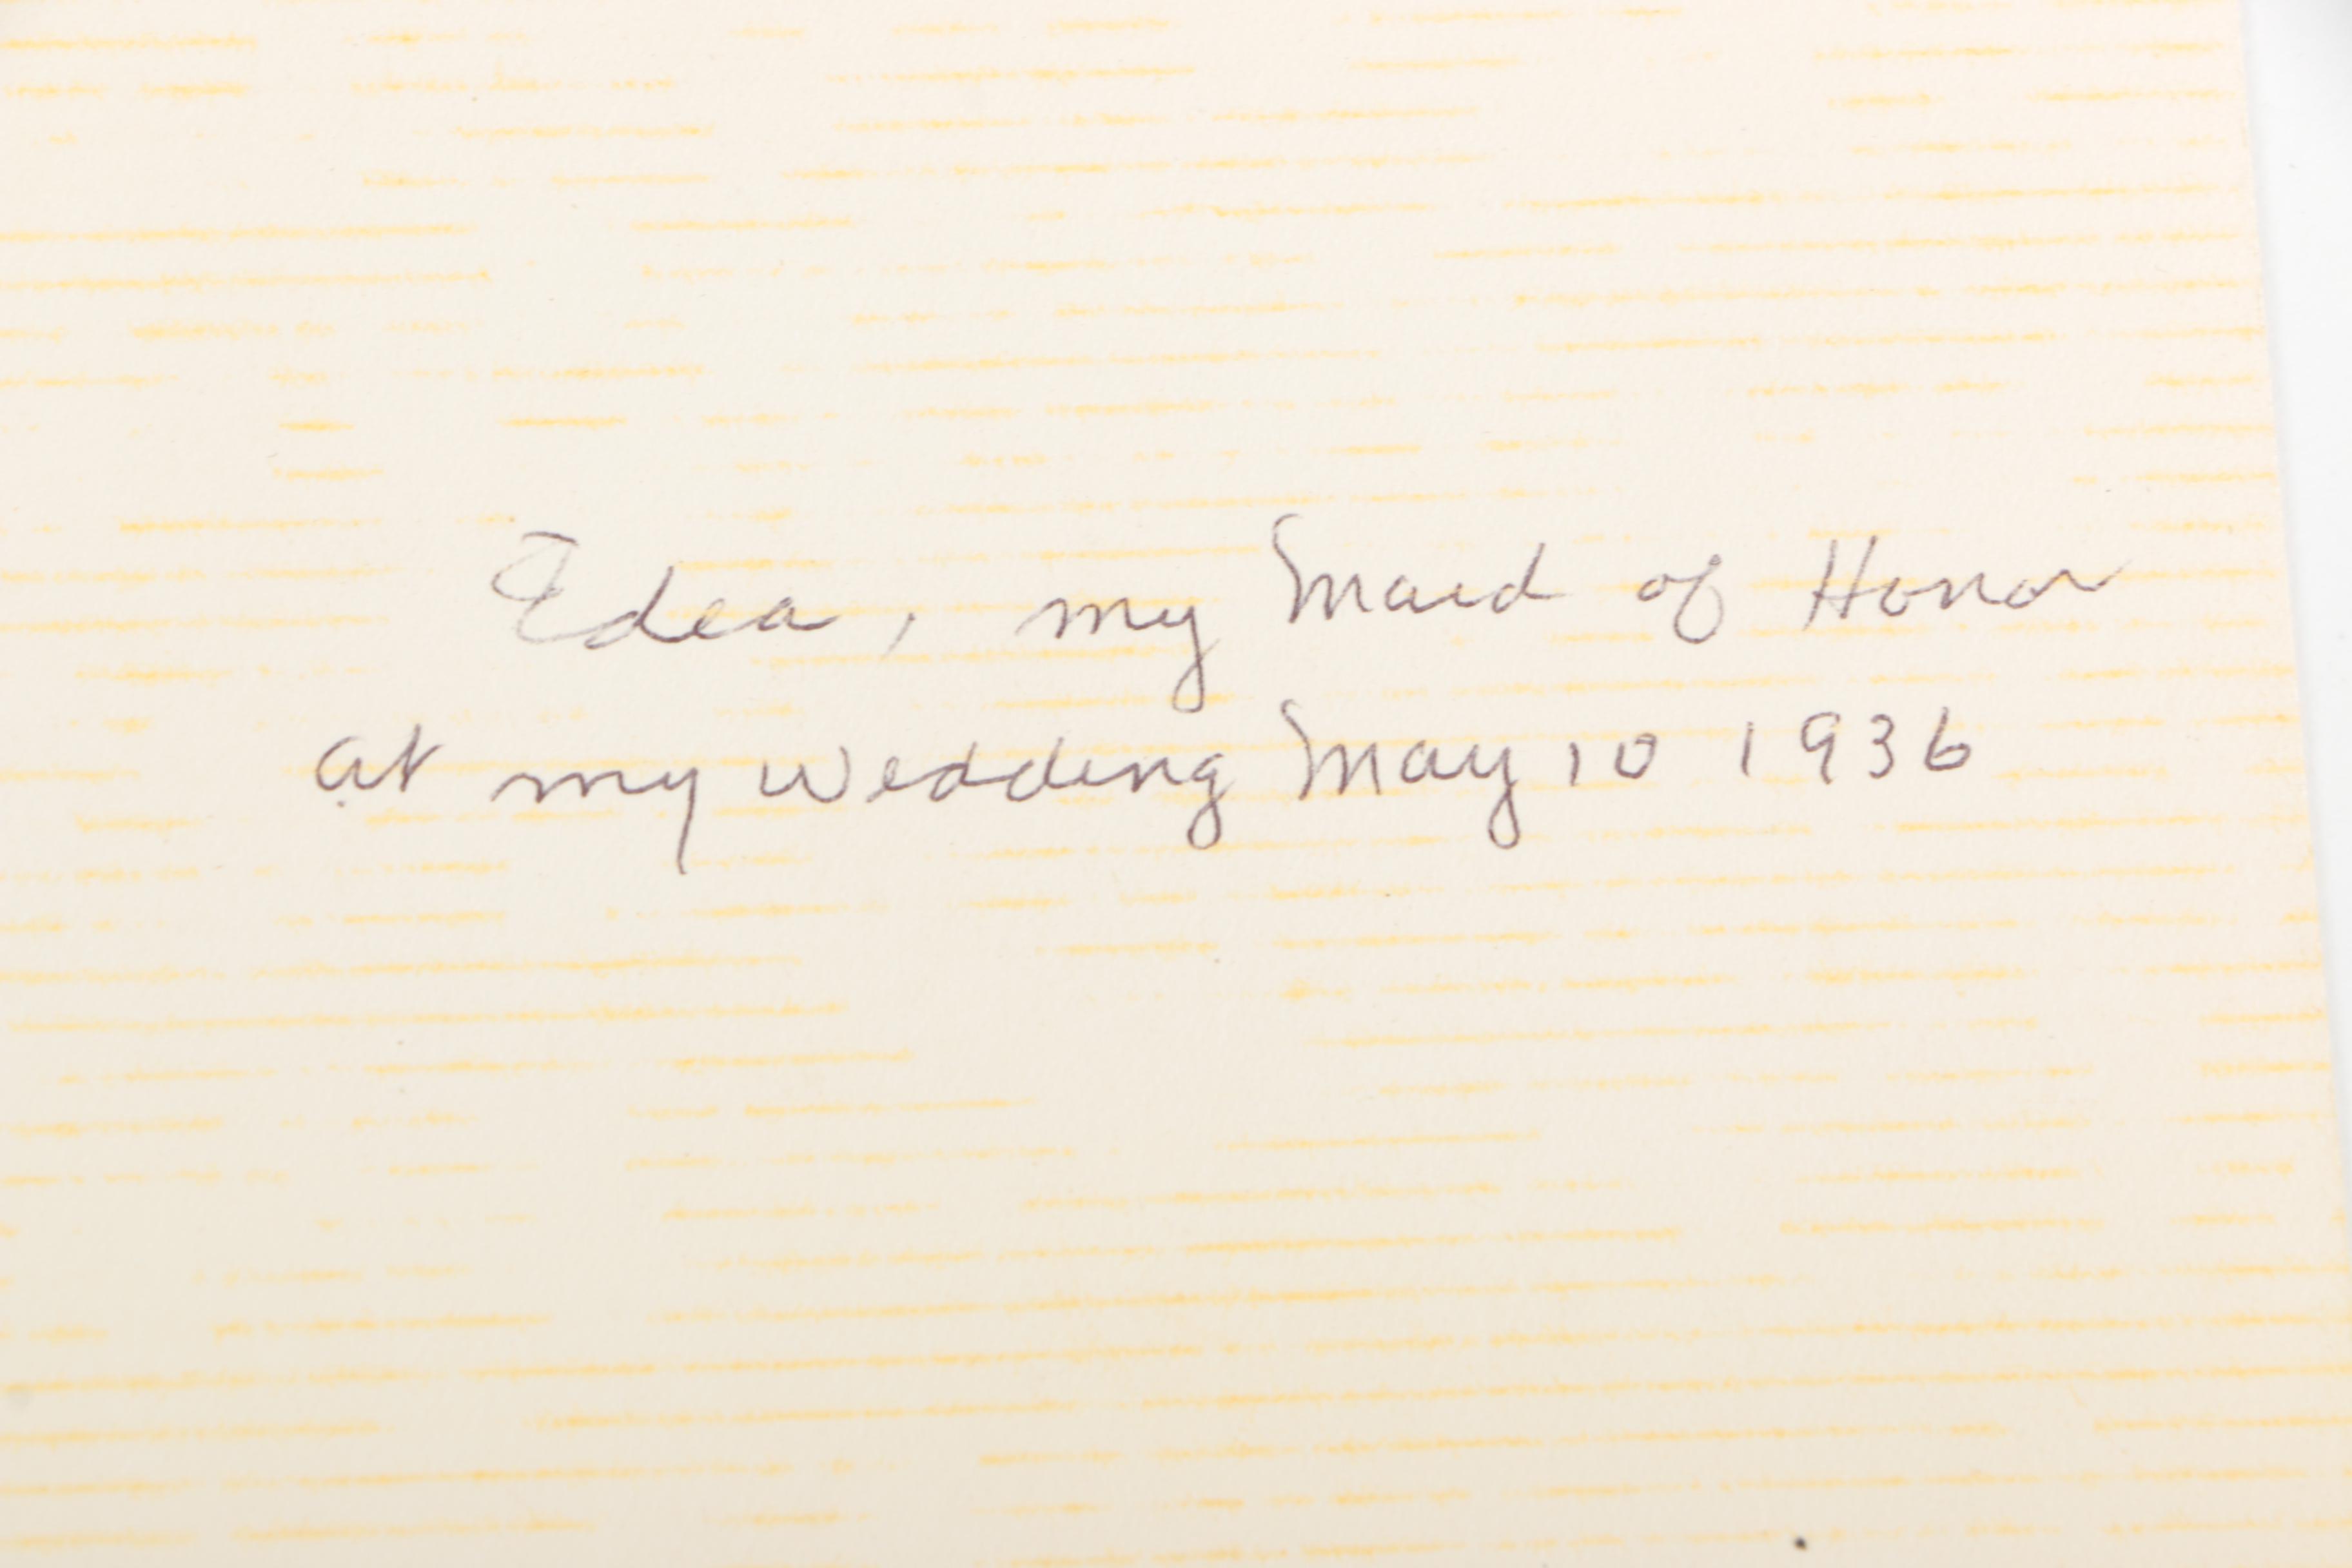 Edea, my Maid of Honor
at my wedding May 10 1936